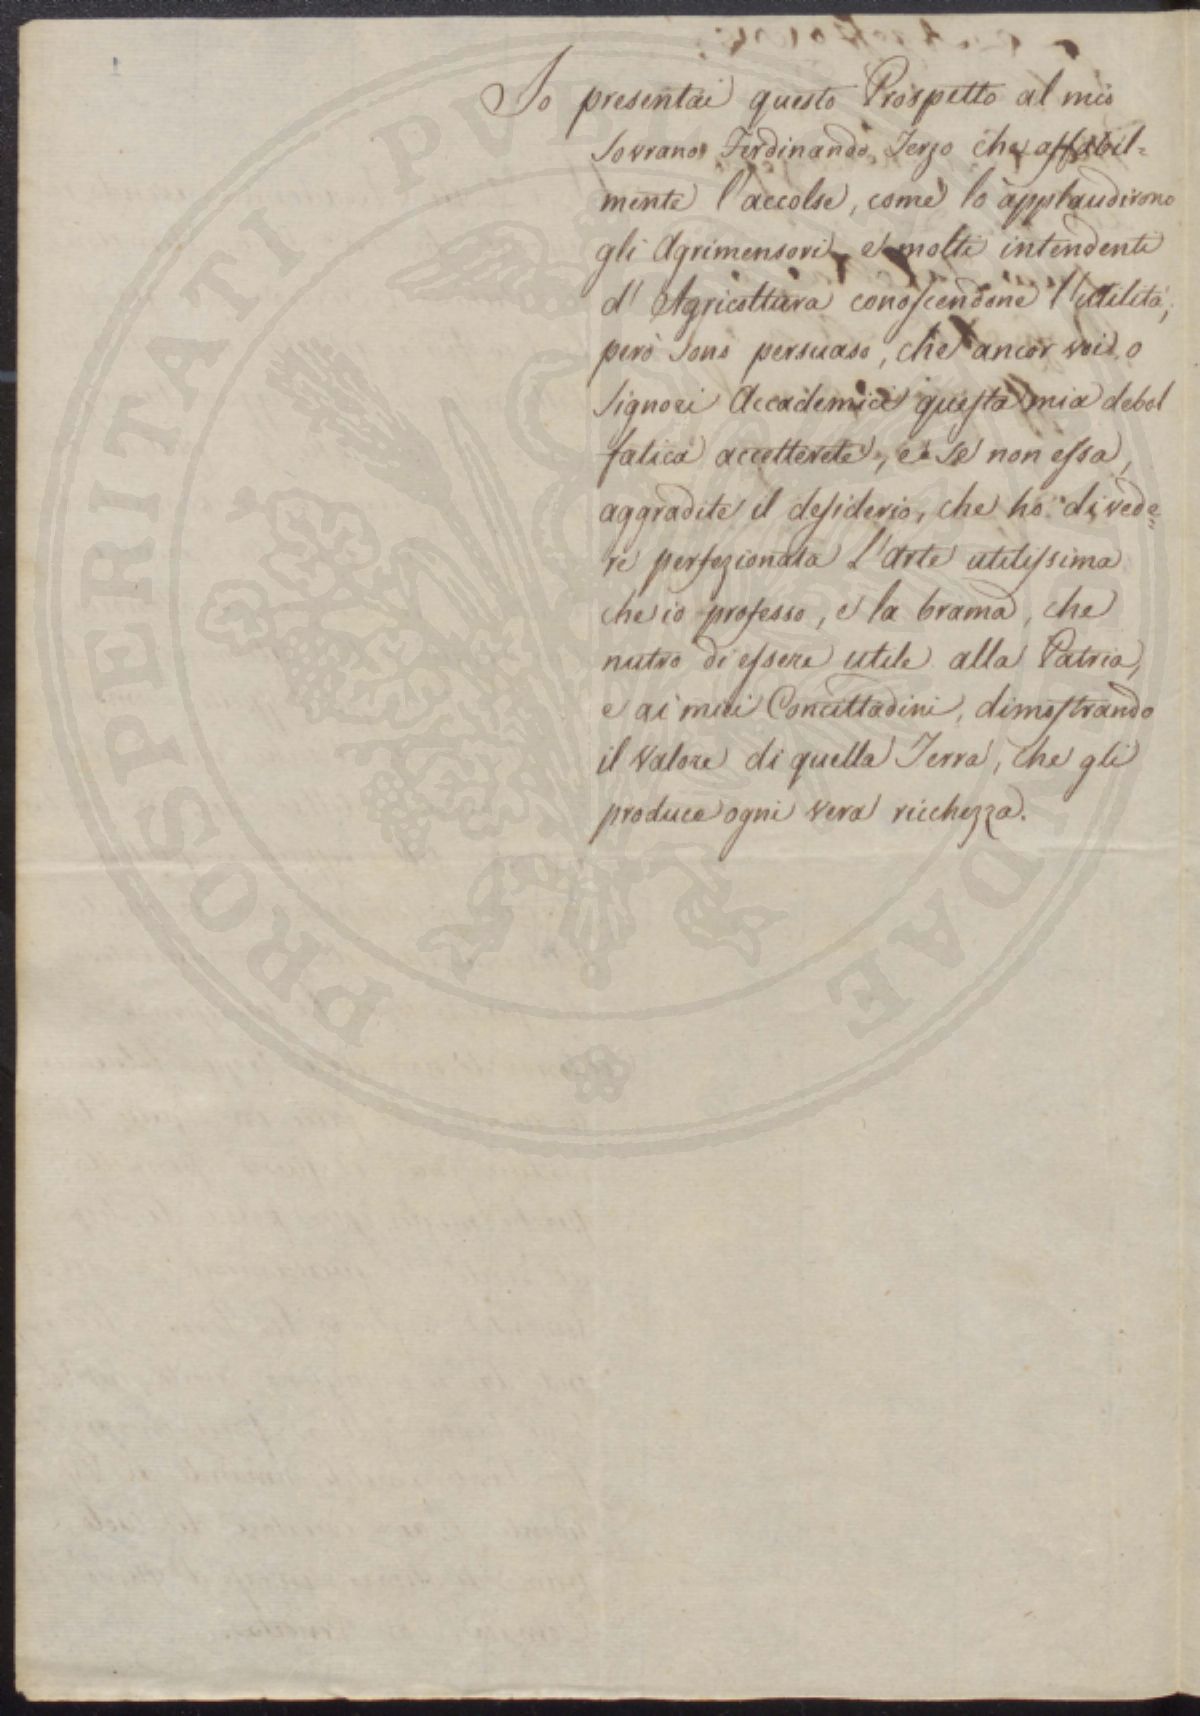 Io presentai questo Prospetto al mio
Sovrano Ferdinando Terzo che affabil=
mente l'accolse, come lo applaudirono
gli Agrimensori, e molti intendenti
d' Agricoltura conoscendone l'utilità;
però sono persuaso, che ancor voi o
Signori Accademici questa mia debol
fatica accetterete, e se non essa,
aggradite il desiderio, che ho di vede=
re perfezionata l'Arte utilissima
che io professo, e la brama, che
nutro di essere utile alla Patria,
e ai miei Concittadini, dimostrando
il valore di quella Terra, che gli
produce ogni vera ricchezza.
PROSPERITATI PUBL
DAE